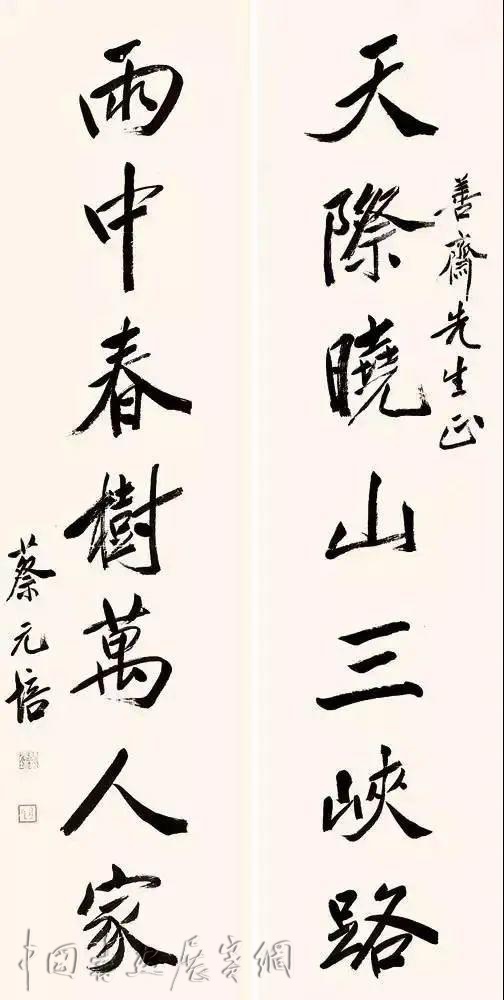 天際曉山三峽路
善齋先生正
雨中春樹萬人家
蔡元培
中國書法展賽網